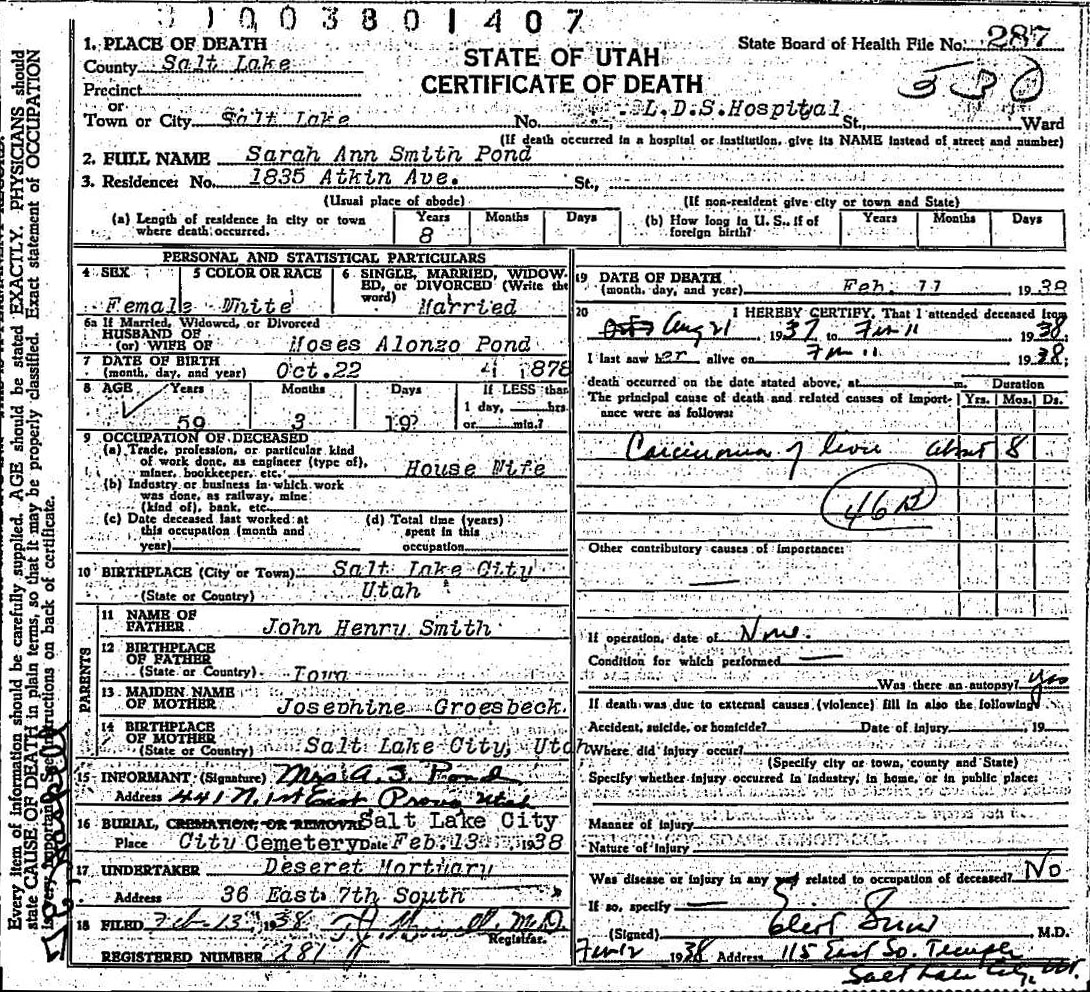 31003801407
1. PLACE OF DEATH
STATE OF UTAH
CERTIFICATE OF DEATH
State Board of Health File No. 287
County Salt Lake
530
Precinct
or
Town or City Salt Lake No. L.D.S.Hospital St., Ward
(If death occurred in a hospital or institution, give its NAME instead of street and number)
2. FULL NAME Sarah Ann Smith Pond
3. Residence: No. 1835 Atkin Ave. St.,
(Usual place of abode) (If non-resident give city or town and State)
(a) Length of residence in city or town where death occurred. Years 8 Months Days
(b) How long in U. S., if of foreign birth? Years Months Days
PERSONAL AND STATISTICAL PARTICULARS
4 SEX Female
5 COLOR OR RACE White
6 SINGLE, MARRIED, WIDOWED, or DIVORCED (Write the word) Married
6a If Married, Widowed, or Divorced
HUSBAND OF
(or) WIFE OF Moses Alonzo Pond
7 DATE OF BIRTH
(month, day, and year) Oct.22 1878
8 AGE Years 59 Months 3 Days 19?
If LESS than
1 day, hrs.
or min.?
9 OCCUPATION OF DECEASED
(a) Trade, profession, or particular kind
of work done, as engineer (type of),
miner, bookkeeper, etc. House Wife
(b) Industry or business in which work
was done, as railway, mine
(kind of), bank, etc.
(c) Date deceased last worked at
this occupation (month and
year)
(d) Total time (years)
spent in this
occupation
10 BIRTHPLACE (City or Town) Salt Lake City
(State or Country) Utah
PARENTS
11 NAME OF
FATHER John Henry Smith
12 BIRTHPLACE
OF FATHER
(State or Country) Iowa
13 MAIDEN NAME
OF MOTHER Josephine Groesbeck
14 BIRTHPLACE
OF MOTHER
(State or Country) Salt Lake City, Utah
15 INFORMANT (Signature) Mrs A. S. Pond
Address 441 N. 1st East Provo, Utah
16 BURIAL, CREMATION, OR REMOVAL Salt Lake City
Place City Cemetery Date Feb.13 1938
17 UNDERTAKER Deseret Mortuary
Address 36 East 7th South
18 FILED Feb 13th, 1938 M.D.
Registrar.
REGISTERED NUMBER 281
19 DATE OF DEATH
(month, day, and year) Feb. 11 1938
20 I HEREBY CERTIFY, That I attended deceased from
Aug 21 1937 to Feb 11 1938
I last saw her alive on Feb 11 1938;
death occurred on the date stated above, at m.
Duration
The principal cause of death and related causes of importance were as follows: Yrs. Mos. Ds.
Carcinoma of liver about 8
46B
Other contributory causes of importance:
If operation, date of None.
Condition for which performed
Was there an autopsy? yes
If death was due to external causes (violence) fill in also the following
Accident, suicide, or homicide? Date of injury 19
Where did injury occur?
(Specify city or town, county and State)
Specify whether injury occurred in industry, in home, or in public place:
Manner of injury
Nature of injury
Was disease or injury in any way related to occupation of deceased? No
If so, specify
(Signed) M.D.
Feb 12 1938 Address 115 East So. Temple
Salt Lake City, Ut.
Every item of information should be carefully supplied. AGE should be stated EXACTLY. PHYSICIANS should
state CAUSE OF DEATH in plain terms, so that it may be properly classified. Exact statement of OCCUPATION
is very important. See instructions on back of certificate.